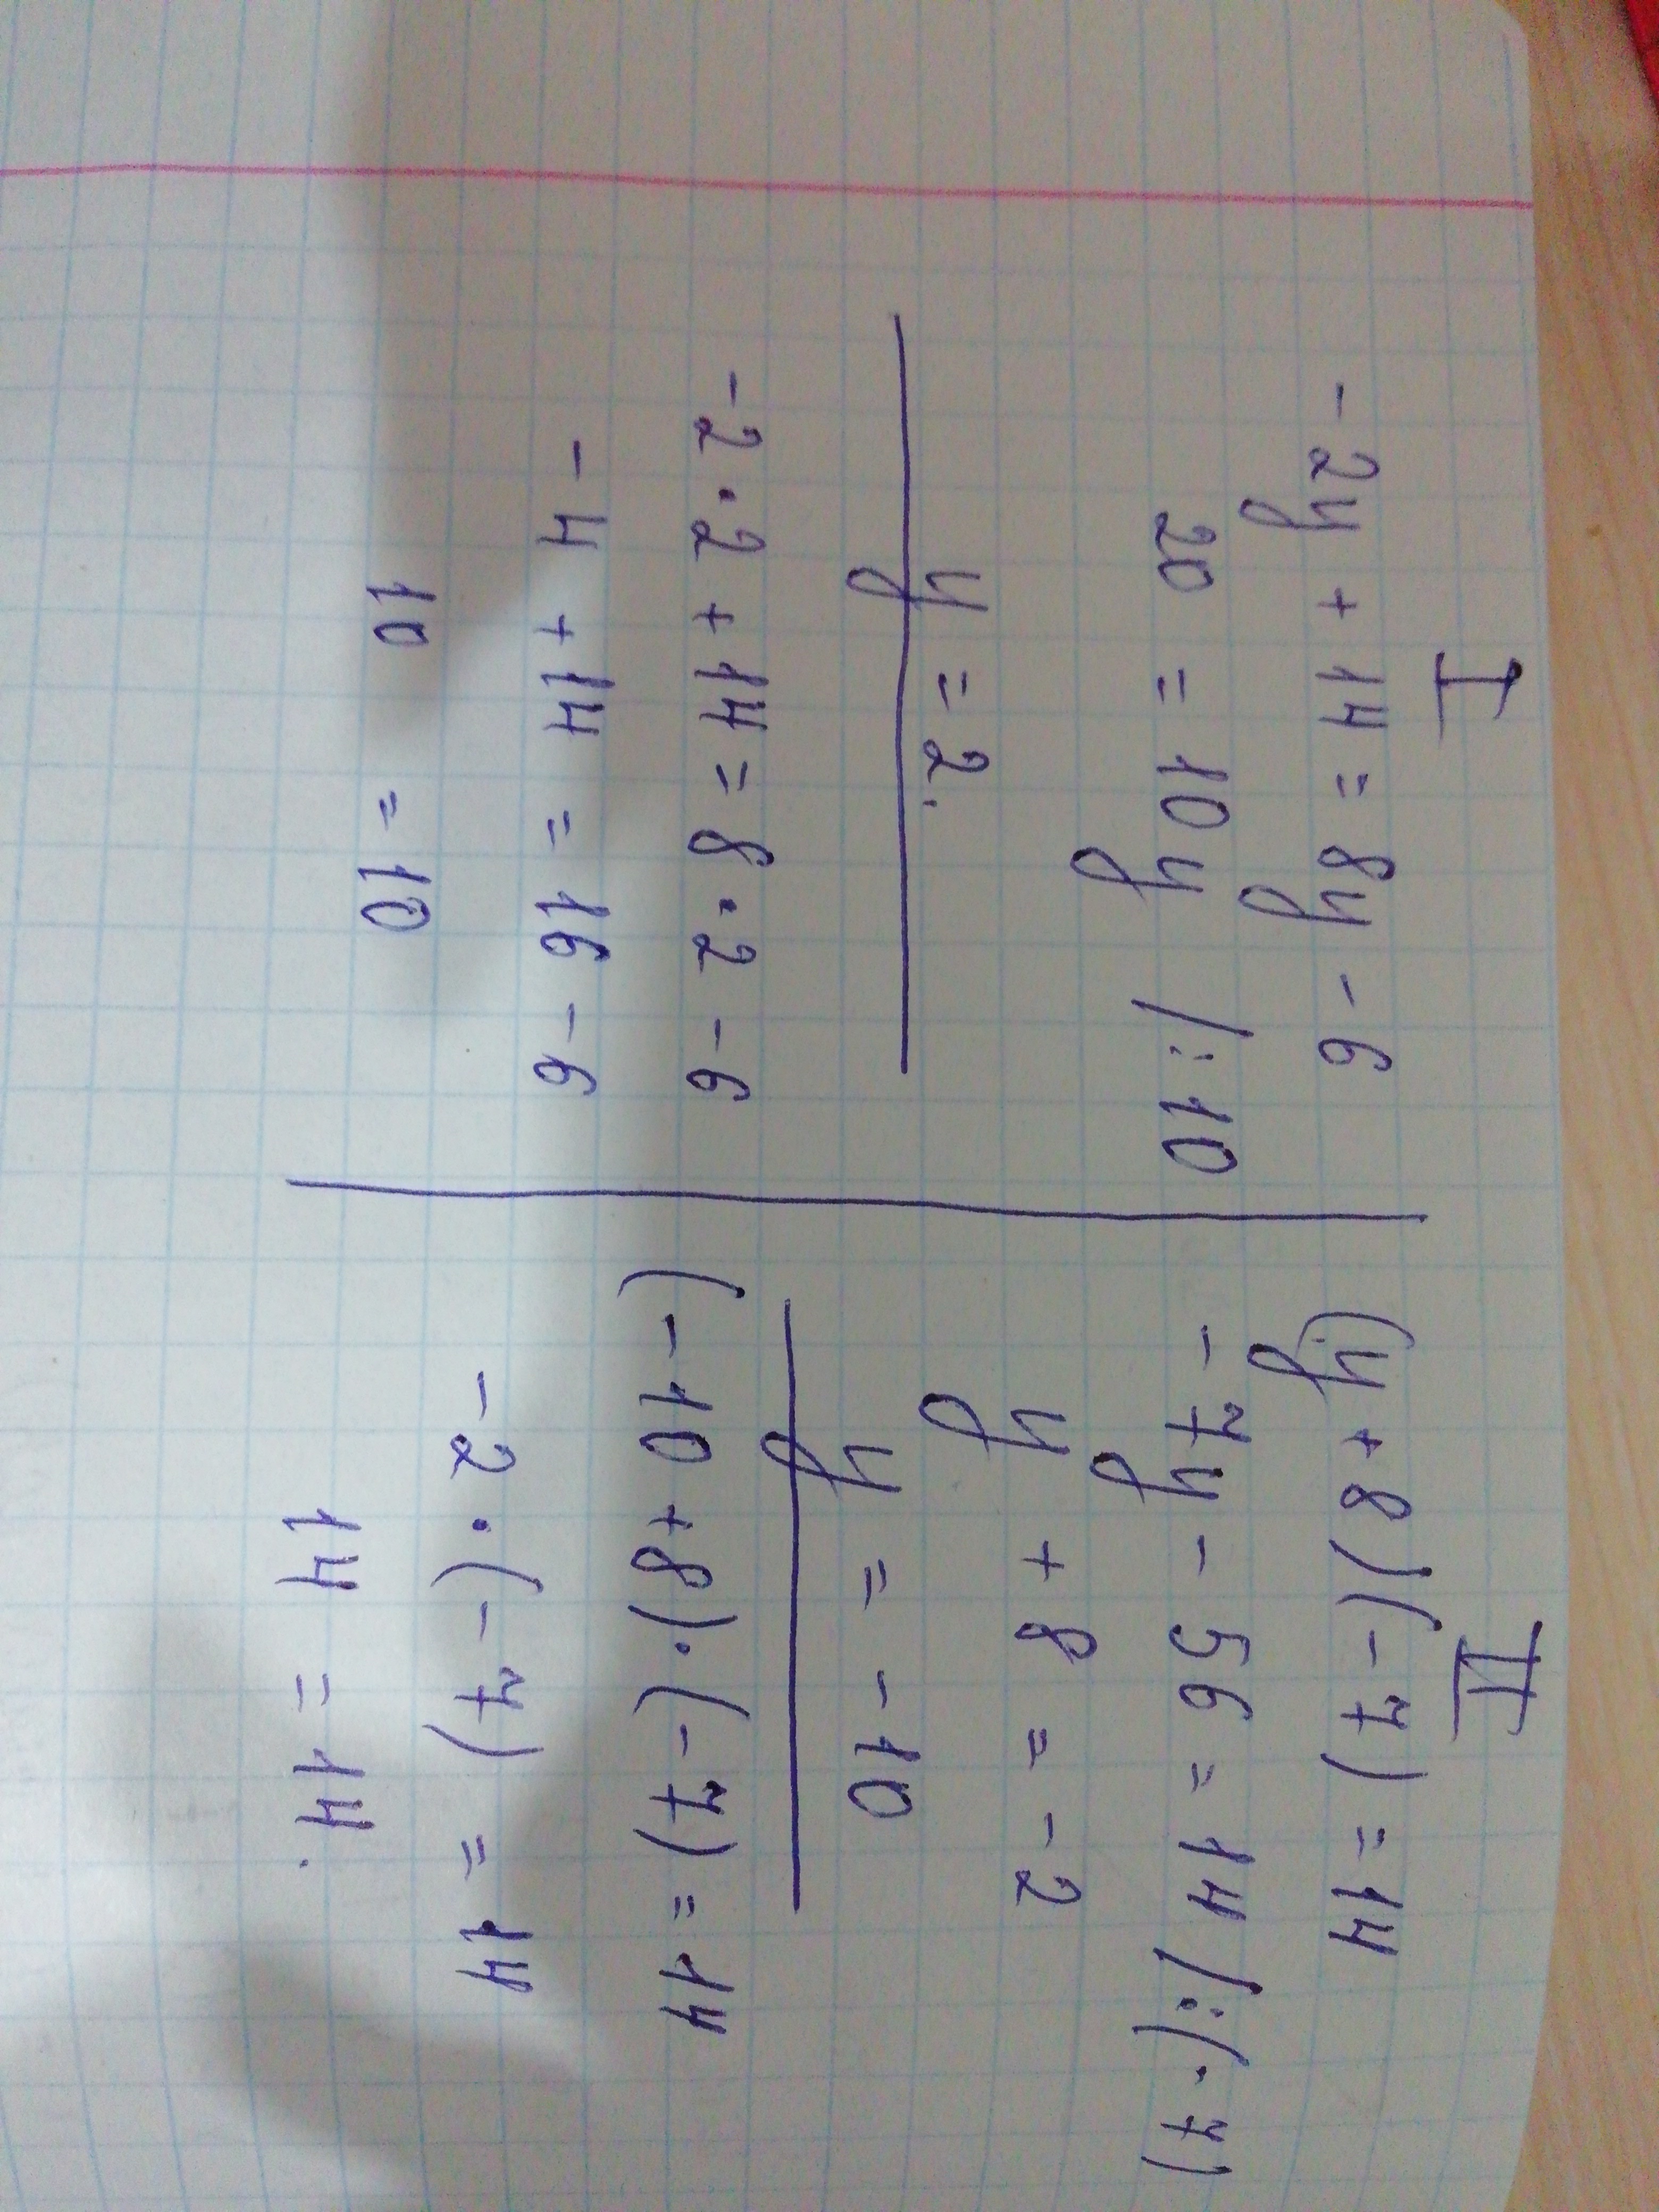 I
-2y + 14 = 8y - 6
20 = 10y /:10
y = 2.
-2·2 + 14 = 8·2 - 6
- 4 + 14 = 16 - 6
10 = 10
II
(y + 8)(-7) = 14
-7y - 56 = 14 /:(-7)
y + 8 = -2
y = -10
(-10 + 8)·(-7) = 14
-2·(-7) = 14
14 = 14.